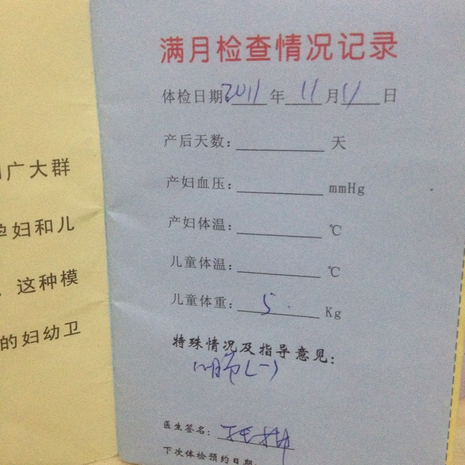 广大群
孕妇和儿
这种模
的妇幼卫
满月检查情况记录
体检日期2011年11月11日
产后天数：天
产妇血压：mmHg
产妇体温：℃
儿童体温：℃
儿童体重：5 Kg
特殊情况及指导意见：
(-)
医生签名：
下次体检预约日期：